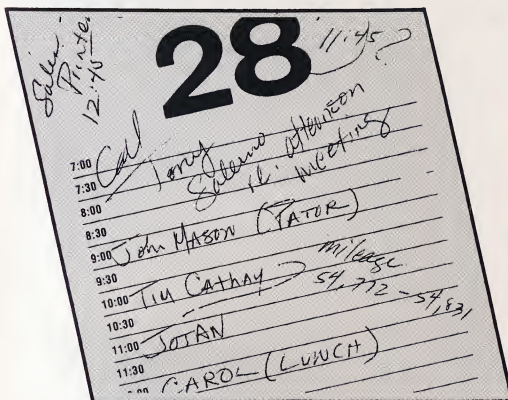 Salem
Printer
12:45
28
11:45 ?
7:00 Call Tony
7:30 Salerno
re. afternoon
meeting
8:00
8:30
9:00 John MASON (TATOR)
9:30
10:00 Tim CATHAY mileage
54,772 - 54,831
10:30
11:00 JOTAN
11:30
CAROL (LUNCH)